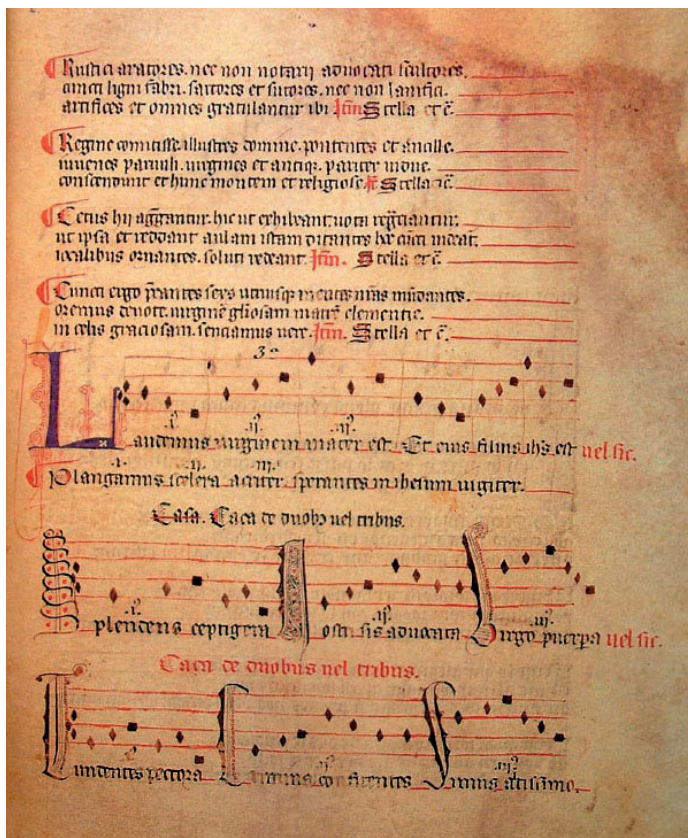 Rustici aratores. nec non notarii advocati scultores.
cuncti ligni fabri. sartores et sutores. nec non lanifici.
artifices et omnes gratulantur ibi Itm̃ Stella et c̃.
Regine comitisse. illustres domine. potentes et ancille.
iuvenes parvuli. virgines et antiq. pariter vidue.
conscendunt et hunc montem et religiose. Stella
Cetus hii aggregantur. hic ut exhibeant. vota
ut ipsa et reddant aulam istam ditantes
iocalibus ornantes. soluti redeant. Itm̃. Stella et c̃.
Cuncti ergo sexus utriusq mentes
oremus devote. virginẽ gliosam matrẽ clementie.
in celis graciosam. senciamus vere. Itm̃. Stella et c̃.
3ª
.i. .ii. .iii.
Laudemus virginem mater est. Et eius filius ihs est vel sic.
.i. .ii. .iii.
Plangamus scelera acriter. sperantes in ihesum
Caça de duobꝫ vel tribus.
.i. .ii. .iii.
Splendens ceptigera Nostri sis advocata Virgo puerpera vel sic.
Caça de duobus vel tribus.
Tundentes pectora Crimina confitentes Simus altissimo.